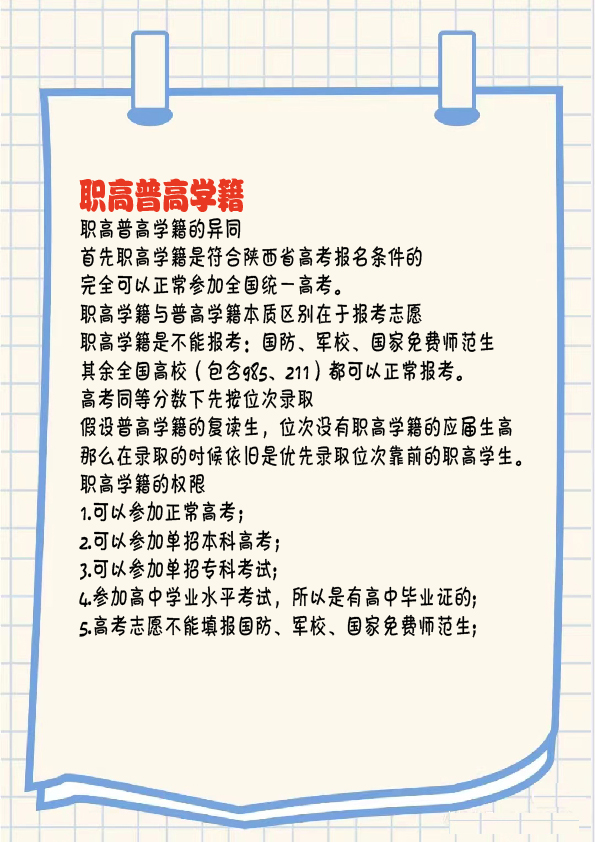 职高普高学籍
职高普高学籍的异同
首先职高学籍是符合陕西省高考报名条件的
完全可以正常参加全国统一高考。
职高学籍与普高学籍本质区别在于报考志愿
职高学籍是不能报考：国防、军校、国家免费师范生
其余全国高校（包含985、211）都可以正常报考。
高考同等分数下先按位次录取
假设普高学籍的复读生，位次没有职高学籍的应届生高
那么在录取的时候依旧是优先录取位次靠前的职高学生。
职高学籍的权限
1.可以参加正常高考；
2.可以参加单招本科高考；
3.可以参加单招专科考试；
4.参加高中学业水平考试，所以是有高中毕业证的；
5.高考志愿不能填报国防、军校、国家免费师范生；